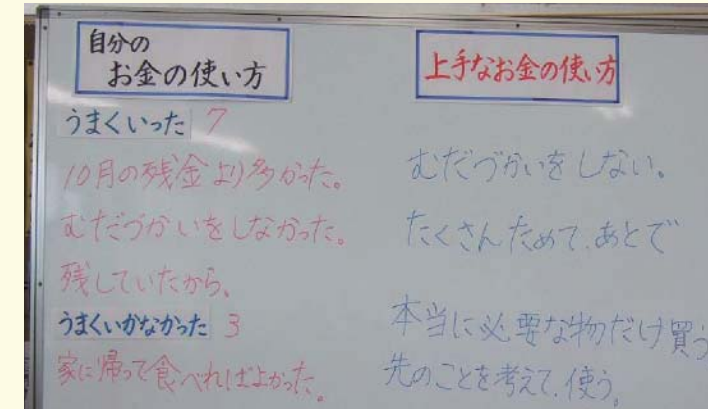 自分の
お金の使い方
うまくいった 7
10月の残金より多かった。
むだづかいをしなかった。
残していたから、
うまくいかなかった 3
家に帰って食べればよかった。
上手なお金の使い方
むだづかいをしない。
たくさんためて、あとで
本当に必要な物だけ買う
先のことを考えて、使う。